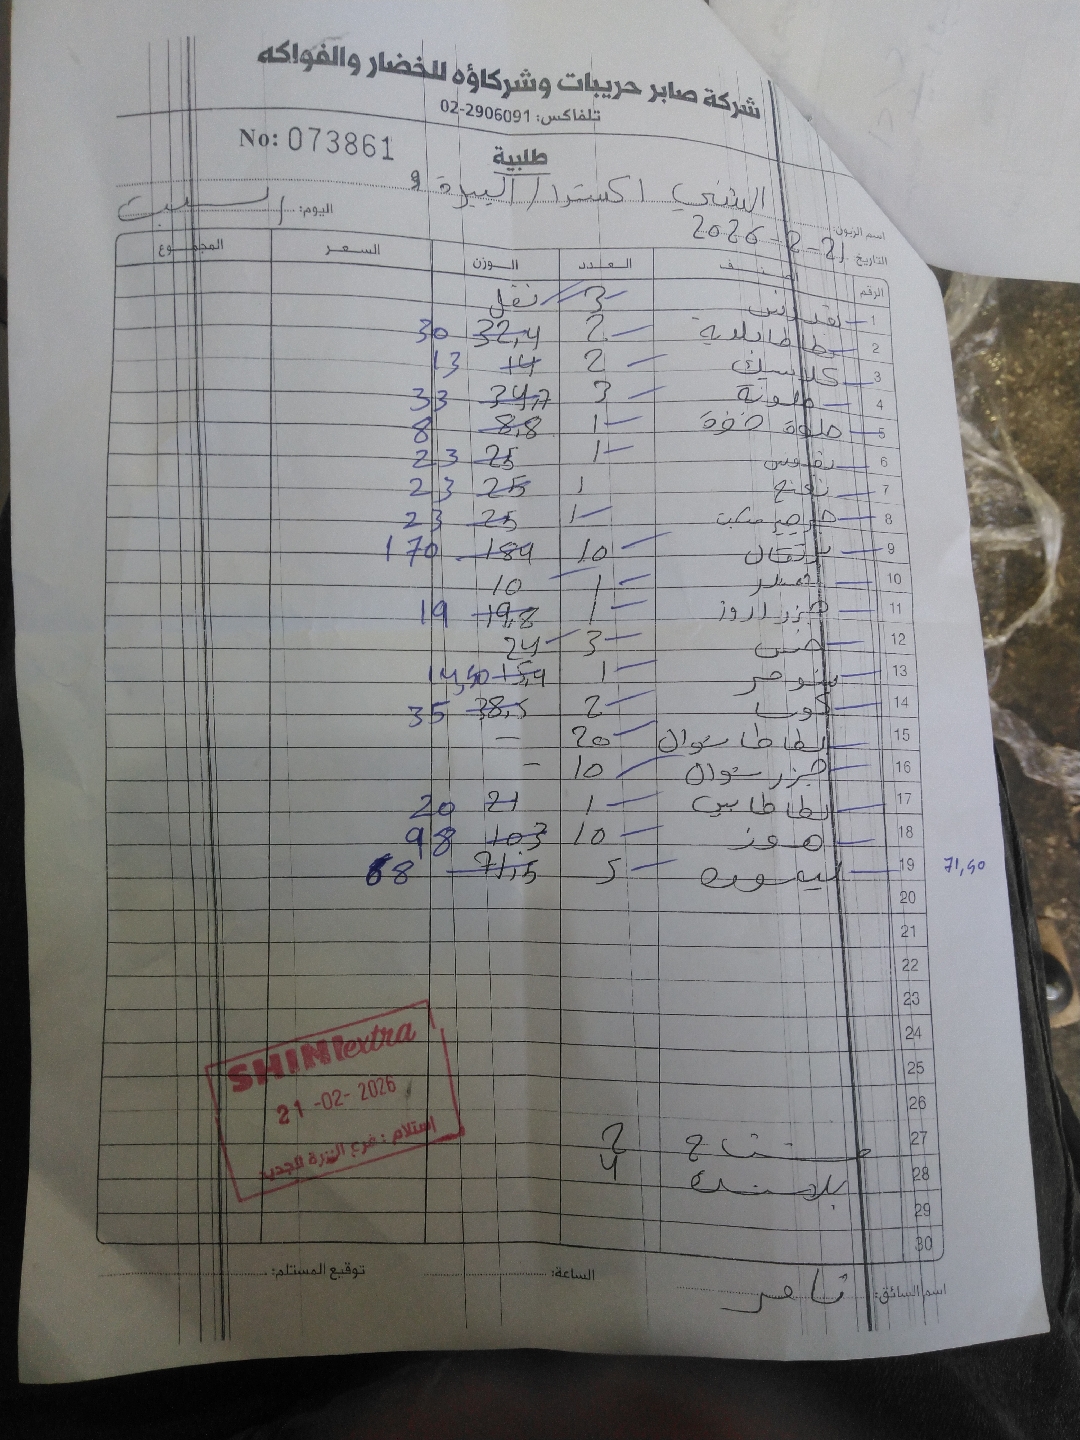 شركة صابر حريبات وشركاؤه للخضار والفواكه
تلفاكس: 02-2906091
No: 073861
طلبية
اسم الزبون: الشني اكسترا / البيرة
اليوم: السبت
التاريخ 21-2-2026
الرقم الصنف العدد الوزن السعر المجموع
1 3
2 2 32,4 30
3 كلاسيك 2 14 13
4 ملونة 3 34,7 33
5 حلوة 1 8,8 8
6 1 25 23
7 نعنع 1 25 23
8 جرجير 1 25 23
9 برتقال 10 184 170
10 1 10
11 جزر 1 19,8 19
12 خس 3 24
13 1 15,4 14,40
14 كوسا 2 38,5 35
15 بطاطا ستوان 20 -
16 جزر ستوان 10 -
17 بطاطا بيبي 1 21 20
18 موز 10 103 98
19 5 71,5 68 71,40
20
21
22
23
24
25
26
27 2
28 4
29
30
SHINI extra
21-02-2026
استلام : فرع البيرة الجديد
اسم السائق: تامر
الساعة:
توقيع المستلم: